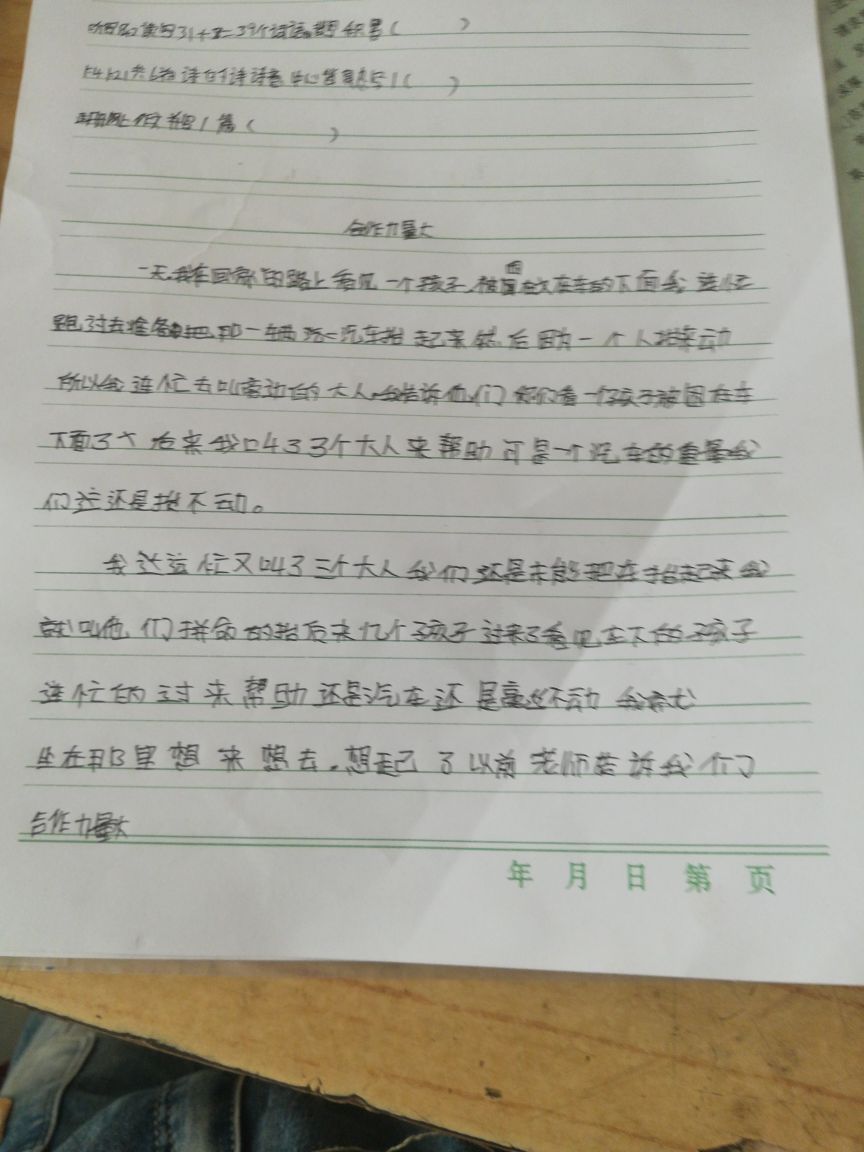 读写31+8=39个词语 积累( )
1-4 1-21共6首诗 诗意 中心思 写1( )
作文 1篇( )
合作力量大
一天,我在回家的路上看见一个孩子,被困在大在车的下面我连忙
跑过去准备把那一辆 汽车抬起来然后因为一个人抬不动
所以我连忙去叫旁边的大人,我告诉他们你们看一个孩子被困在车
下面了 后来我叫了3个大人来帮助可是一个汽车的重量我
们这还是抬不动。
我连忙又叫了三个大人我们还是未能把车抬起来我
就叫他们拼命的抬后来几个孩子过来了看见车下的孩子
连忙的过来帮助还是汽车还是毫丝不动 我
坐在那里想来想去,想起了以前老师告诉我们
合作力量大
年 月 日 第 页